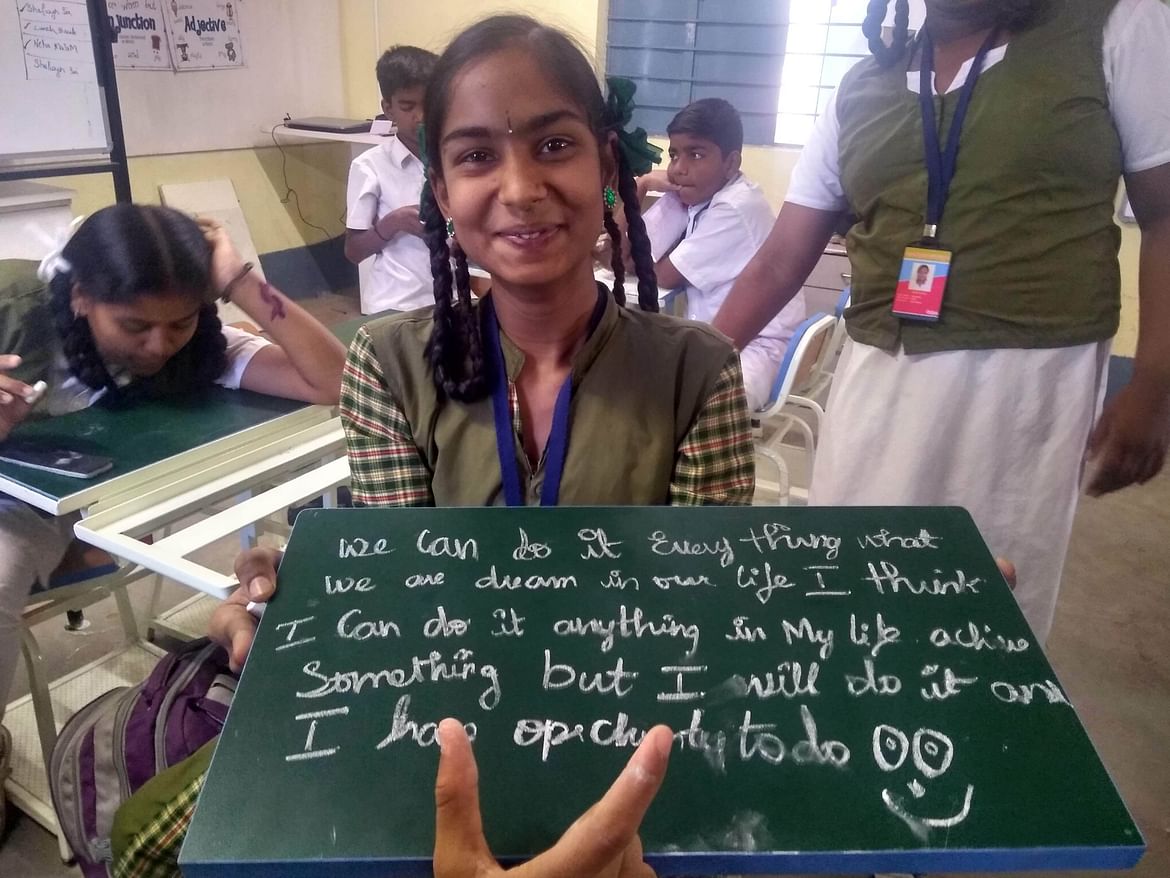 Shafayn Sa
Neha
Shafayn Sa
junction
and
Adjective
we can do it Every thing what
we are dream in our life I think
I Can do it anything in My life achive
Something but I will do it and
I have to do